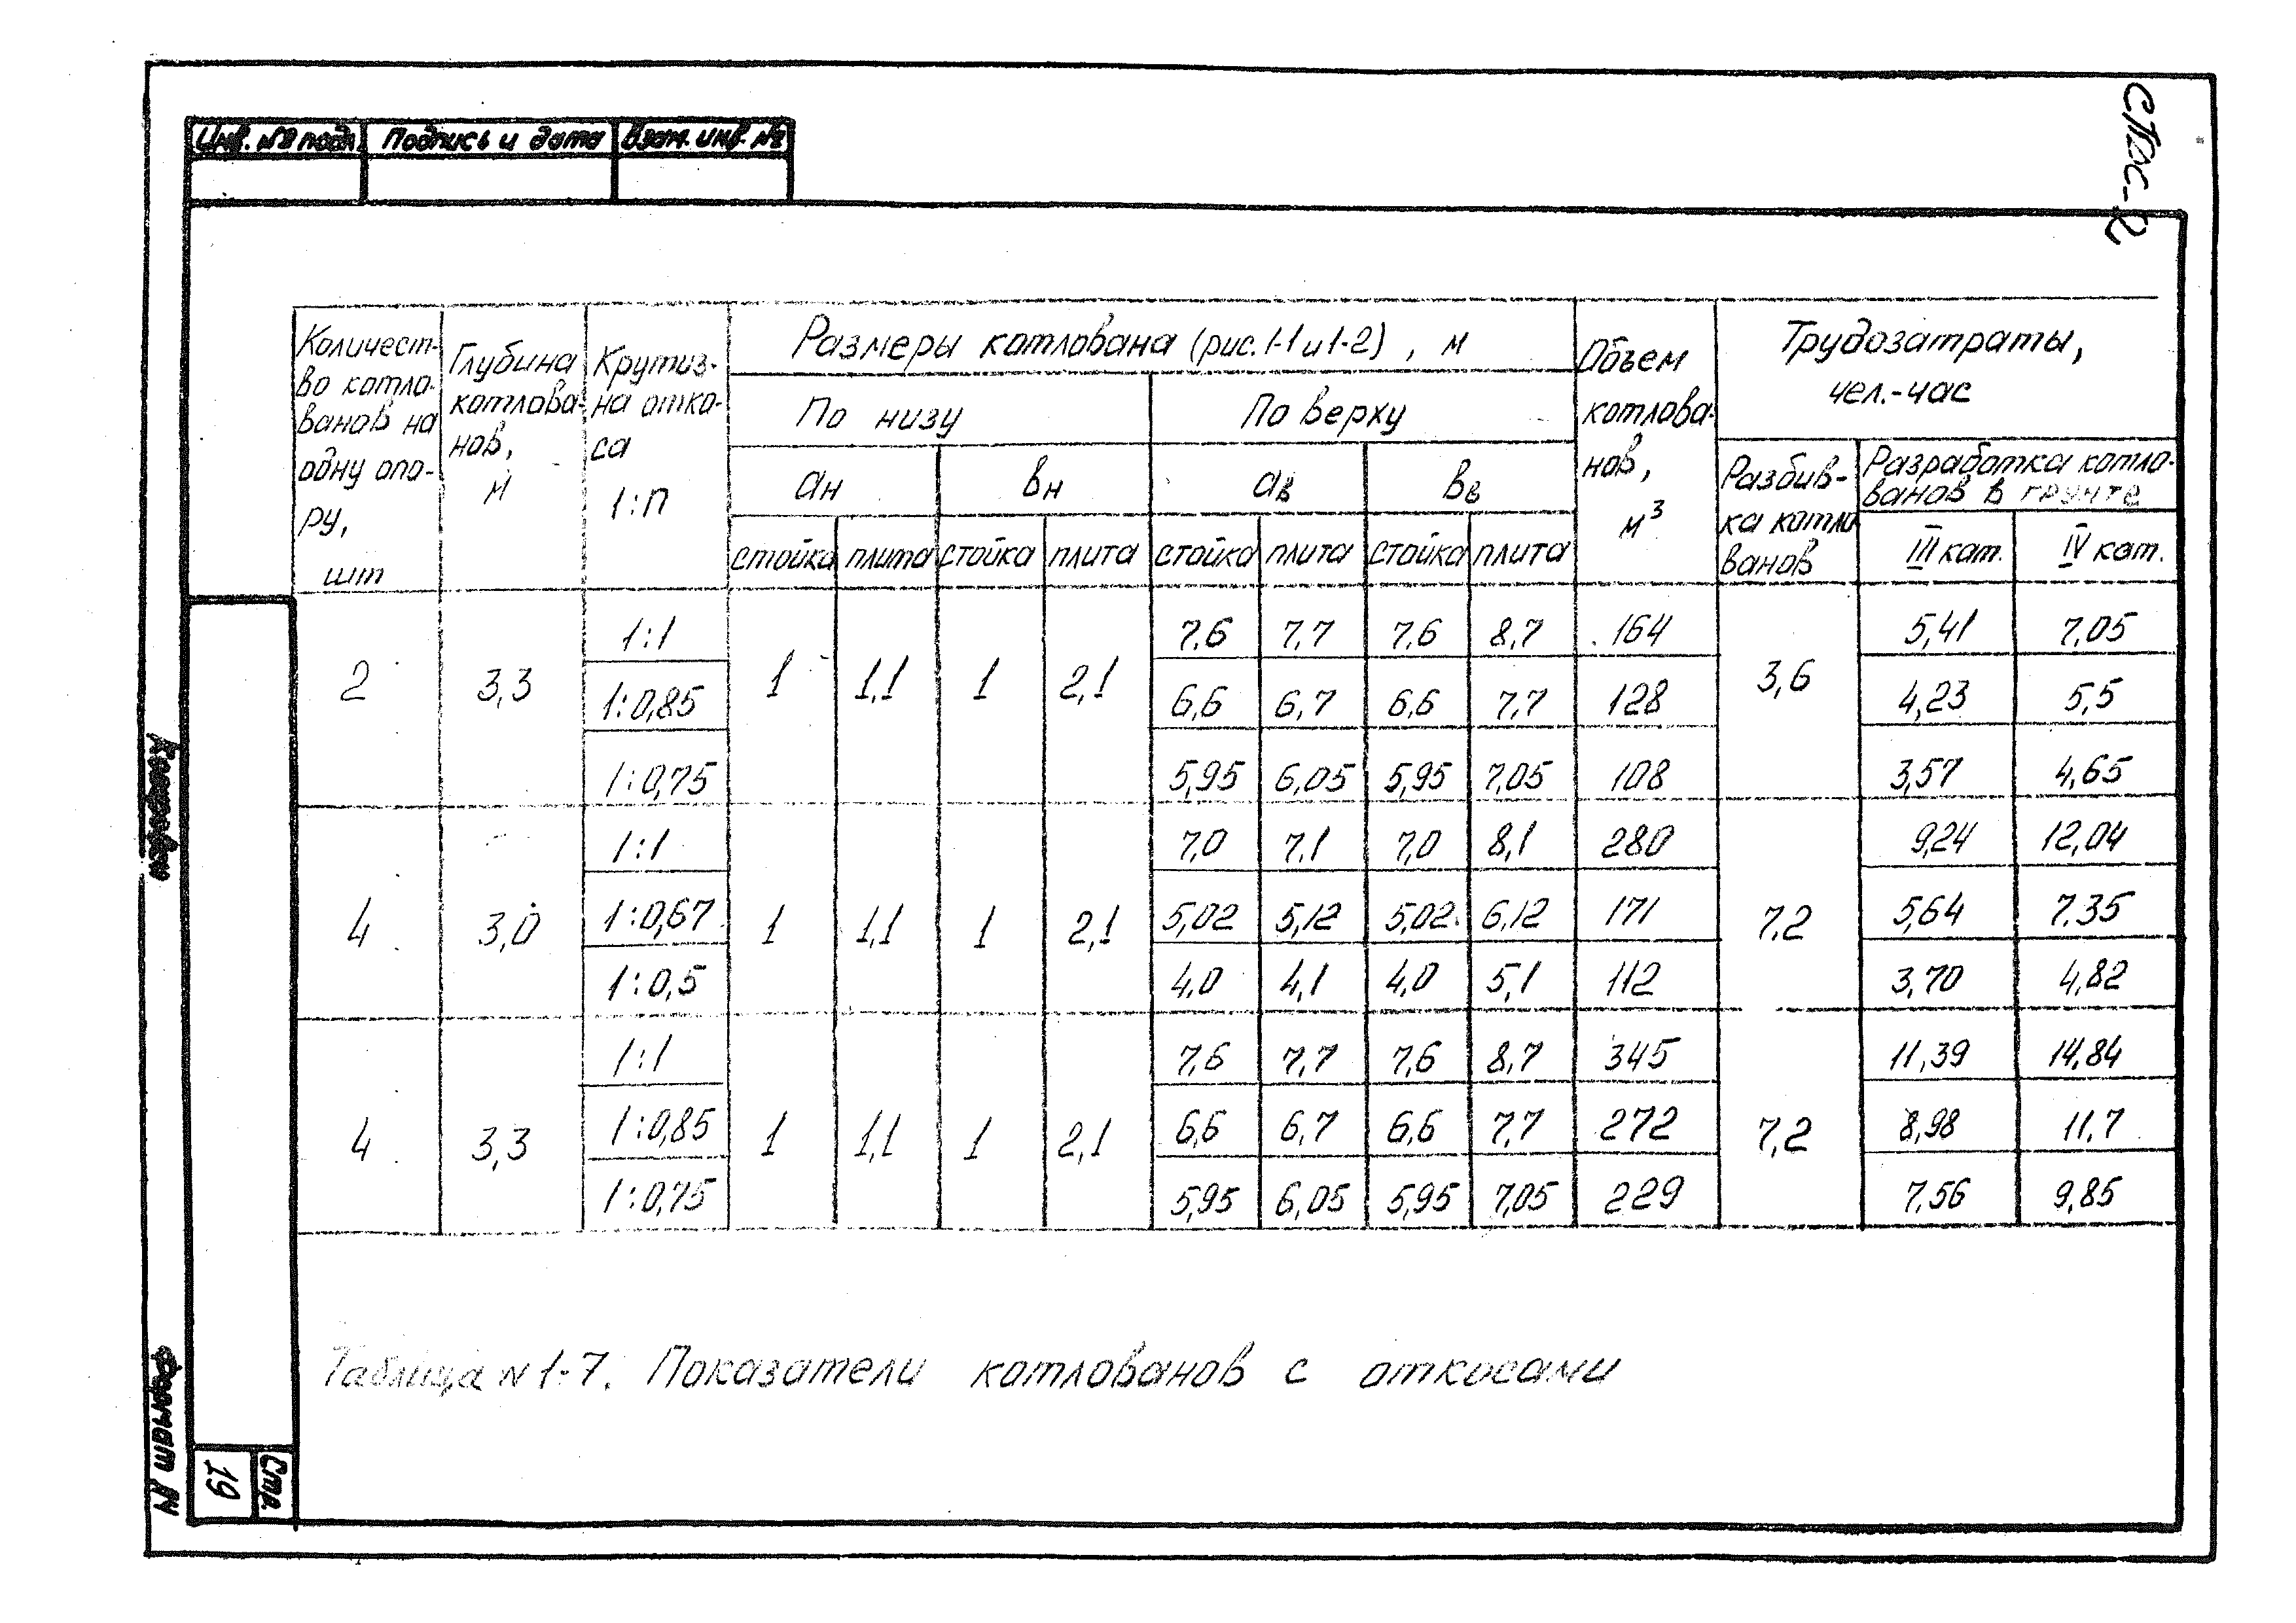 Инв. № подл. Подпись и дата Взам. инв. №
Количест- во котло- ванов на одну опо- ру, шт
Глубина котлова- нов, м
Крутиз- на отко- са 1:п
Размеры котлована (рис. 1-1 и 1-2), м
По низу По верху
ан вн ав вв
стойка плита стойка плита стойка плита стойка плита
Объем котлова- нов, м³
Трудозатраты, чел.-час
Разбив- ка котло ванов
Разработка котло- ванов в грунте
III кат. IV кат.
2 3,3 1:1 1 1,1 1 2,1 7,6 7,7 7,6 8,7 164 3,6 5,41 7,05
1:0,85 6,6 6,7 6,6 7,7 128 4,23 5,5
1:0,75 5,95 6,05 5,95 7,05 108 3,57 4,65
4 3,0 1:1 1 1,1 1 2,1 7,0 7,1 7,0 8,1 280 7,2 9,24 12,04
1:0,67 5,02 5,12 5,02 6,12 171 5,64 7,35
1:0,5 4,0 4,1 4,0 5,1 112 3,70 4,82
4 3,3 1:1 1 1,1 1 2,1 7,6 7,7 7,6 8,7 345 7,2 11,39 14,84
1:0,85 6,6 6,7 6,6 7,7 272 8,98 11,7
1:0,75 5,95 6,05 5,95 7,05 229 7,56 9,85
Таблица N 1-7. Показатели котлованов с откосами
Стр.
19
Формат